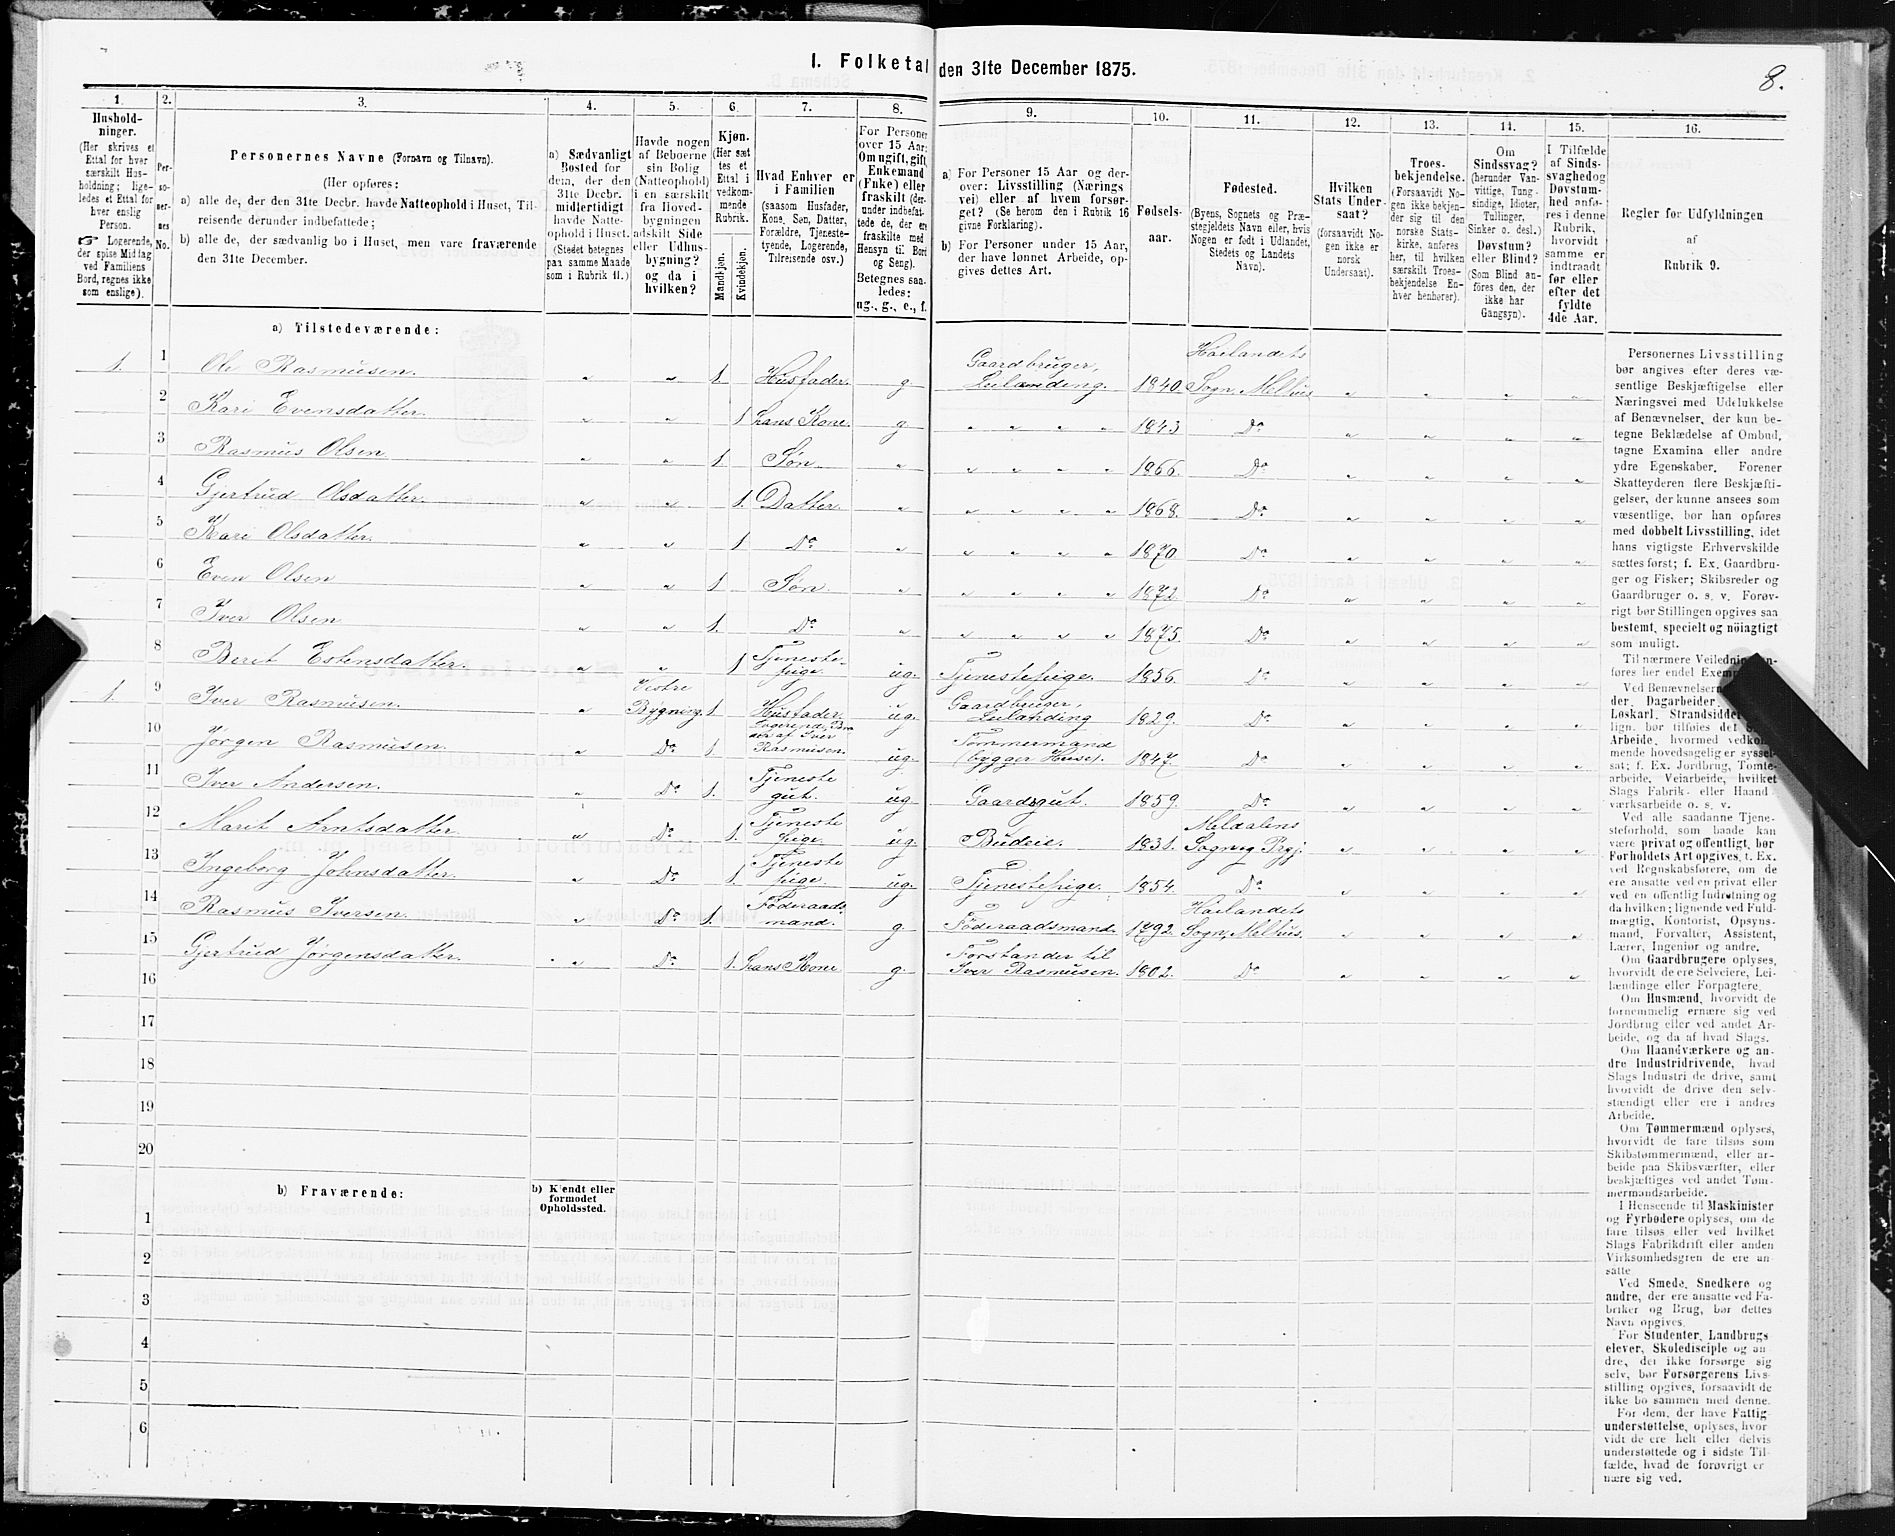 I. Folketal den 31te December 1875.
8.
1.
Hushold-
ninger.
(Her skrives et
Ettal for hver
særskilt Hus-
holdning; lige-
ledes et Ettal for
hver enslig
Person.
☞ Logerende,
der spise Middag
ved Familiens
Bord, regnes ikke
som enslige).
2.
Per-
so-
ner-
nes
No.
3.
Personernes Navne (Fornavn og Tilnavn).
(Her opføres:
a) alle de, der den 31te Decbr. havde Natteophold i Huset, Til-
reisende derunder indbefattede;
b) alle de, der sædvanlig bo i Huset, men vare fraværende
den 31te December.
4.
a) Sædvanligt
Bosted for
dem, der den
31te Decbr.
midlertidigt
havde Natte-
ophold i Huset.
(Stedet betegnes
paa samme Maade
som i Rubrik 11.)
5.
Havde nogen
af Beboerne
sin Bolig
(Natteophold)
i en særskilt
fra Hoved-
bygningen
adskilt Side
eller Udhus-
bygning?
og da i
hvilken?
6.
Kjøn.
(Her sæt
tes et
Ettal i
vedkom-
mende
Rubrik.
Mandkjøn.
Kvindekjøn.
7.
Hvad Enhver er
i Familien
(saasom Husfader,
Kone, Søn, Datter,
Forældre, Tjeneste-
tyende, Logerende,
Tilreisende osv.)
8.
For Personer
over 15 Aar:
Om ugift, gift,
Enkemand
(Enke) eller
fraskilt (der-
under indbefat-
tede de, der ere
fraskilte med
Hensyn til Bord
og Seng).
Betegnes saa-
ledes:
ug., g., e., f.
9.
a) For Personer 15 Aar og der-
over: Livsstilling (Nærings
vei) eller af hvem forsør-
get? (Se herom den i Rubrik 16
givne Forklaring).
b) For Personer under 15 Aar,
der have lønnet Arbeide, op-
gives dettes Art.
10.
Fødsels-
aar.
11.
Fødested.
(Byens, Sognets og Præ-
stegjeldets Navn eller, hvis
Nogen er født i Udlandet,
Stedets og Landets
Navn).
12.
Hvilken
Stats Under-
saat?
(forsaavidt No-
gen ikke er
norsk
Undersaat).
13.
Troes-
bekjendelse.
(Forsaavidt No-
gen ikke bekjen-
der sig til den
norske Stats-
kirke, anføres
her, til hvilken
særskilt Troes-
bekjendelse En-
hver henhører).
14.
Om
Sindssvag?
(herunder Van-
vittige, Tung-
sindige, Idioter,
Tullinger,
Sinker o. desl.)
Døvstum?
eller Blind?
(Som Blind an-
føres den, der
ikke har
Gangsyn).
15.
I Tilfælde
af Sinds-
svaghed og
Døvstum-
hed anfø-
res i denne
Rubrik,
hvorvidt
samme er
indtraadt
før eller
efter det
fyldte
4de Aar.
16.
Regler for Udfyldningen
af
Rubrik 9.
a) Tilstedeværende:
1. 1 Ole Rasmusen. „ „ 1. Husfader. g Gaardbruger, Leilænding. 1840. Høilandets Sogn, Melhus „ „ „ „
2 Kari Evensdatter. „ „ 1 hans Kone. g „ „ „ „ 1843 Do „ „ „ „
3 Rasmus Olsen „ „ 1. Søn. „ „ „ „ „ 1866. Do „ „ „ „
4 Gjertrud Olsdatter. „ „ 1. Datter. „ „ „ „ „ 1868. Do „ „ „ „
5 Kari Olsdatter. „ „ 1 Do „ „ „ „ „ 1870. Do „ „ „ „
6 Even Olsen „ „ 1. Søn. „ „ „ „ „ 1872. Do „ „ „ „
7 Iver Olsen „ „ 1. Do „ „ „ „ „ 1875. Do „ „ „ „
8 Berit Estensdatter. „ „ 1 Tjeneste-pige. ug. Tjenestepige. 1856. Do „ „ „ „
1 9 Iver Rasmusen. „ Vestre Bygning. 1. Husfader. ug. Gaardbruger, Leilænding 1829. Do „ „ „ „
10 Jørgen Rasmusen. „ Do 1. Logerende, Bro der af Iver Rasmusen. ug. Tømmermand (bygger Huse). 1847. Do „ „ „ „
11 Iver Andersen. „ Do 1. Tjeneste gut. ug. Gaardsgut. 1859. Do „ „ „ „
12 Marit Arntsdatter „ Do 1. Tjeneste pige. ug. Budeie. 1831. Meldalens Sogn og Prgj. „ „ „ „
13 Ingeborg Johnsdatter. „ Do 1. Tjeneste pige. ug. Tjenestepige. 1854. Do „ „ „ „
14 Rasmus Iversen. „ Do 1. Føderaads mand. g. Føderaadsmand. 1792. Høilandets Sogn, Melhus. „ „ „ „
15 Gjertrud Jørgensdatter. „ Do 1. hans Kone g. Forstander til Iver Rasmusen. 1802. Do „ „ „ „
16
17
18
19
20
b) Fraværende:
b) Kjendt eller
formodet
Opholdssted.
1
2
3
4
5
6
Personernes Livsstilling
bør angives efter deres væ-
sentlige Beskjæftigelse eller
Næringsvei med Udelukkelse
af Benævnelser, der kun be-
tegne Beklædelse af Ombud,
tagne Examina eller andre
ydre Egenskaber. Forener
Skatteyderen flere Beskjæfti-
gelser, der kunne ansees som
væsentlige, bør han opføres
med dobbelt Livsstilling, idet
hans vigtigste Erhvervskilde
sættes først; f. Ex. Gaardbru-
ger og Fisker; Skibsreder og
Gaardbruger o. s. v. Forøv-
rigt bør Stillingen opgives saa
bestemt, specielt og nöiagtigt
som muligt.
Til nærmere Veiledning an-
føres her endel Exempler
Ved Benævnelsern
der, Dagarbeider,
Løskarl, Strandsidder
lign. bør tilføies det
Arbeide, hvormed vedkom-
mende hovedsagelig er syssel-
sat; f. Ex. Jordbrug, Tomte-
arbeide, Veiarbeide, hvilket
Slags Fabrik- eller Haand-
værksarbeide o. s. v.
Ved alle saadanne Tjene-
steforhold, som baade kan
være privat og offentligt, bør
Forholdets Art opgives, t. Ex.
ved Regnskabsførere, om de
ere ansatte ved en privat eller
ved en offentlig Indretning og
da hvilken; lignende ved Fuld-
mægtig, Kontorist, Opsyns-
mand, Forvalter, Assistent,
Lærer, Ingeniør og andre.
Om Gaardbrugere oplyses,
hvorvidt de ere Selveiere, Lei-
lændinge eller Forpagtere.
Om Husmænd, hvorvidt de
fornemmelig ernære sig ved
Jordbrug eller ved andet Ar-
beide, og da af hvad Slags.
Om Haandværkere og an-
dre Industridrivende, hvad
Slags Industri de drive, samt
hvorvidt de drive den selv-
stændigt eller ere i andres
Arbeide.
Om Tømmermænd oplyses,
hvorvidt de fare tilsøs som
Skibstømmermænd, eller ar-
beide paa Skibsværfter, eller
beskjæftiges ved andet Tøm-
mermandsarbeide.
I Henseende til Maskinister
og Fyrbødere oplyses, om de
fare tilsøs eller ved hvilket
Slags Fabrikdrift eller anden
Virksomhedsgren de ere an-
satte
Ved Smede, Snedkere og
andre, der ere ansatte ved Fa-
briker og Brug, bør dettes
Navn opgives.
For Studenter, Landbrugs
elever, Skoledisciple og an-
dre, der ikke forsørge sig
selv, bør Forsørgerens Livs-
stilling opgives, forsaavidt de
ikke bo sammen med denne.
For dem, der have Fattig-
understøttelse, oplyses, hvor
vidt de ere helt eller delvis
understøttede og i sidste Til-
fælde, hvad de forøvrigt er
nære sig ved.